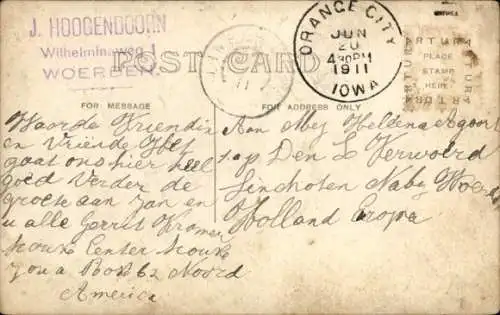 J. HOOGENDOORN
Wilhelminaweg 1
WOERDEN
POST CARD
ORANGE CITY
JUN
20
4 30 PM
1911
IOWA
ARTURA
PLACE
STAMP
HERE
FOR MESSAGE
FOR ADDRESS ONLY
Waarde Vriendin
en Vriende Het
gaat ons hier heel
goed Verder de
groete aan Jan en
u alle Gerrit Kramer
Sioux Center
Box 62 Noord
America
Aan Mej Helena
Den L Verwoerd
Linschoten Naby
Holland Eropa